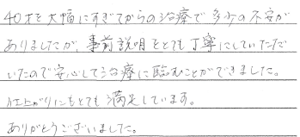 40才を大幅にすぎてからの治療で多少の不安が
ありましたが、事前説明をとても丁寧にしていただ
いたので安心して治療に臨むことができました。
仕上がりにもとても満足しています。
ありがとうございました。